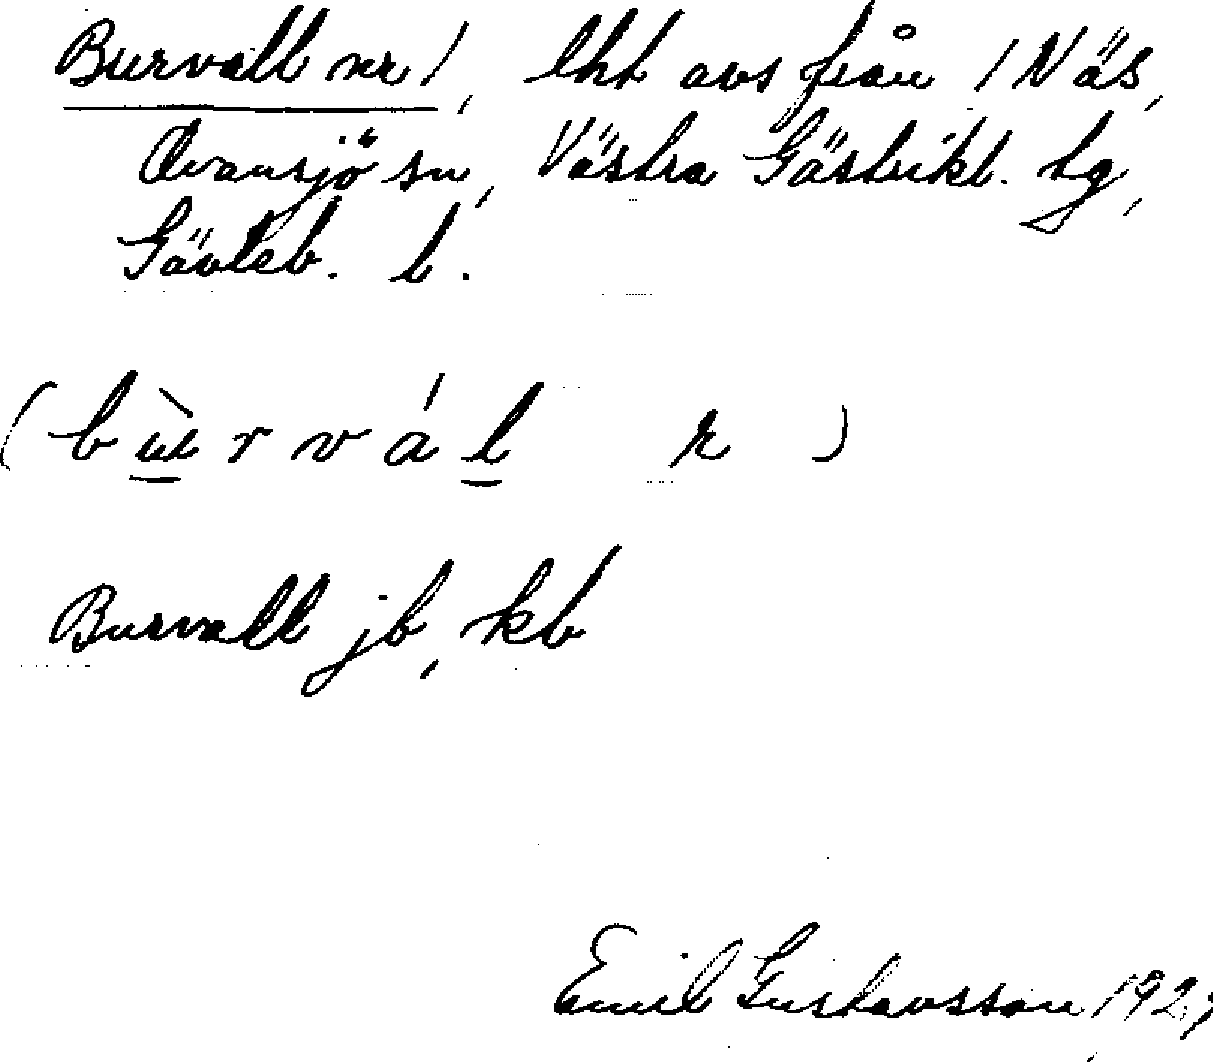 Burvall nr 1, lht avs från 1 Näs,
Ovansjö sn, Västra Gästrikl. tg,
Gävleb. l.
(b ù r v á l r)
Burvall jb, kb
Emil Gustavsson,